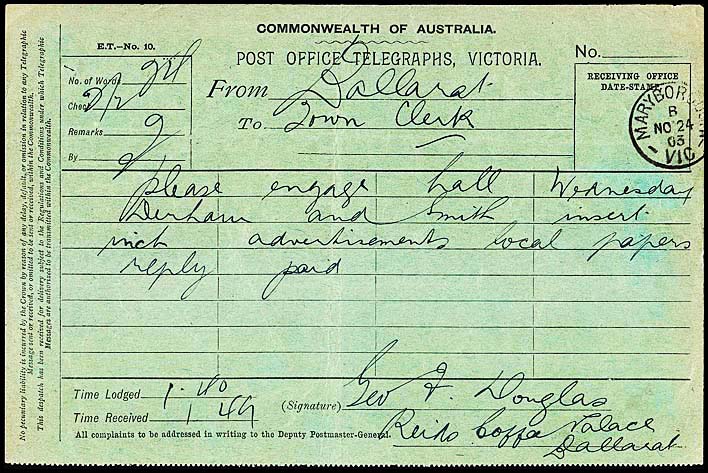 COMMONWEALTH OF AUSTRALIA.
E.T.—No. 10.
POST OFFICE TELEGRAPHS, VICTORIA.
No.
No. of Words
Check
Remarks
By
From Ballarat
To Town Clerk
RECEIVING OFFICE
DATE-STAMP
MARYBOROUGH
B
NO 24
03
VIC
please engage hall Wednesday
Derham and Smith insert
inch advertisements local papers
reply paid
Time Lodged 1.40
Time Received 1 49
(Signature) Geo F. Douglas
Reids Coffee Palace
Ballarat
All complaints to be addressed in writing to the Deputy Postmaster-General.
No pecuniary liability is incurred by the Crown by reason of any delay, default, or omission in relation to any Telegraphic
Message sent or received, or omitted to be sent or received, within the Commonwealth.
This despatch has been received for delivery subject to the Regulations and Conditions under which Telegraphic
Messages are authorised to be transmitted within the Commonwealth.